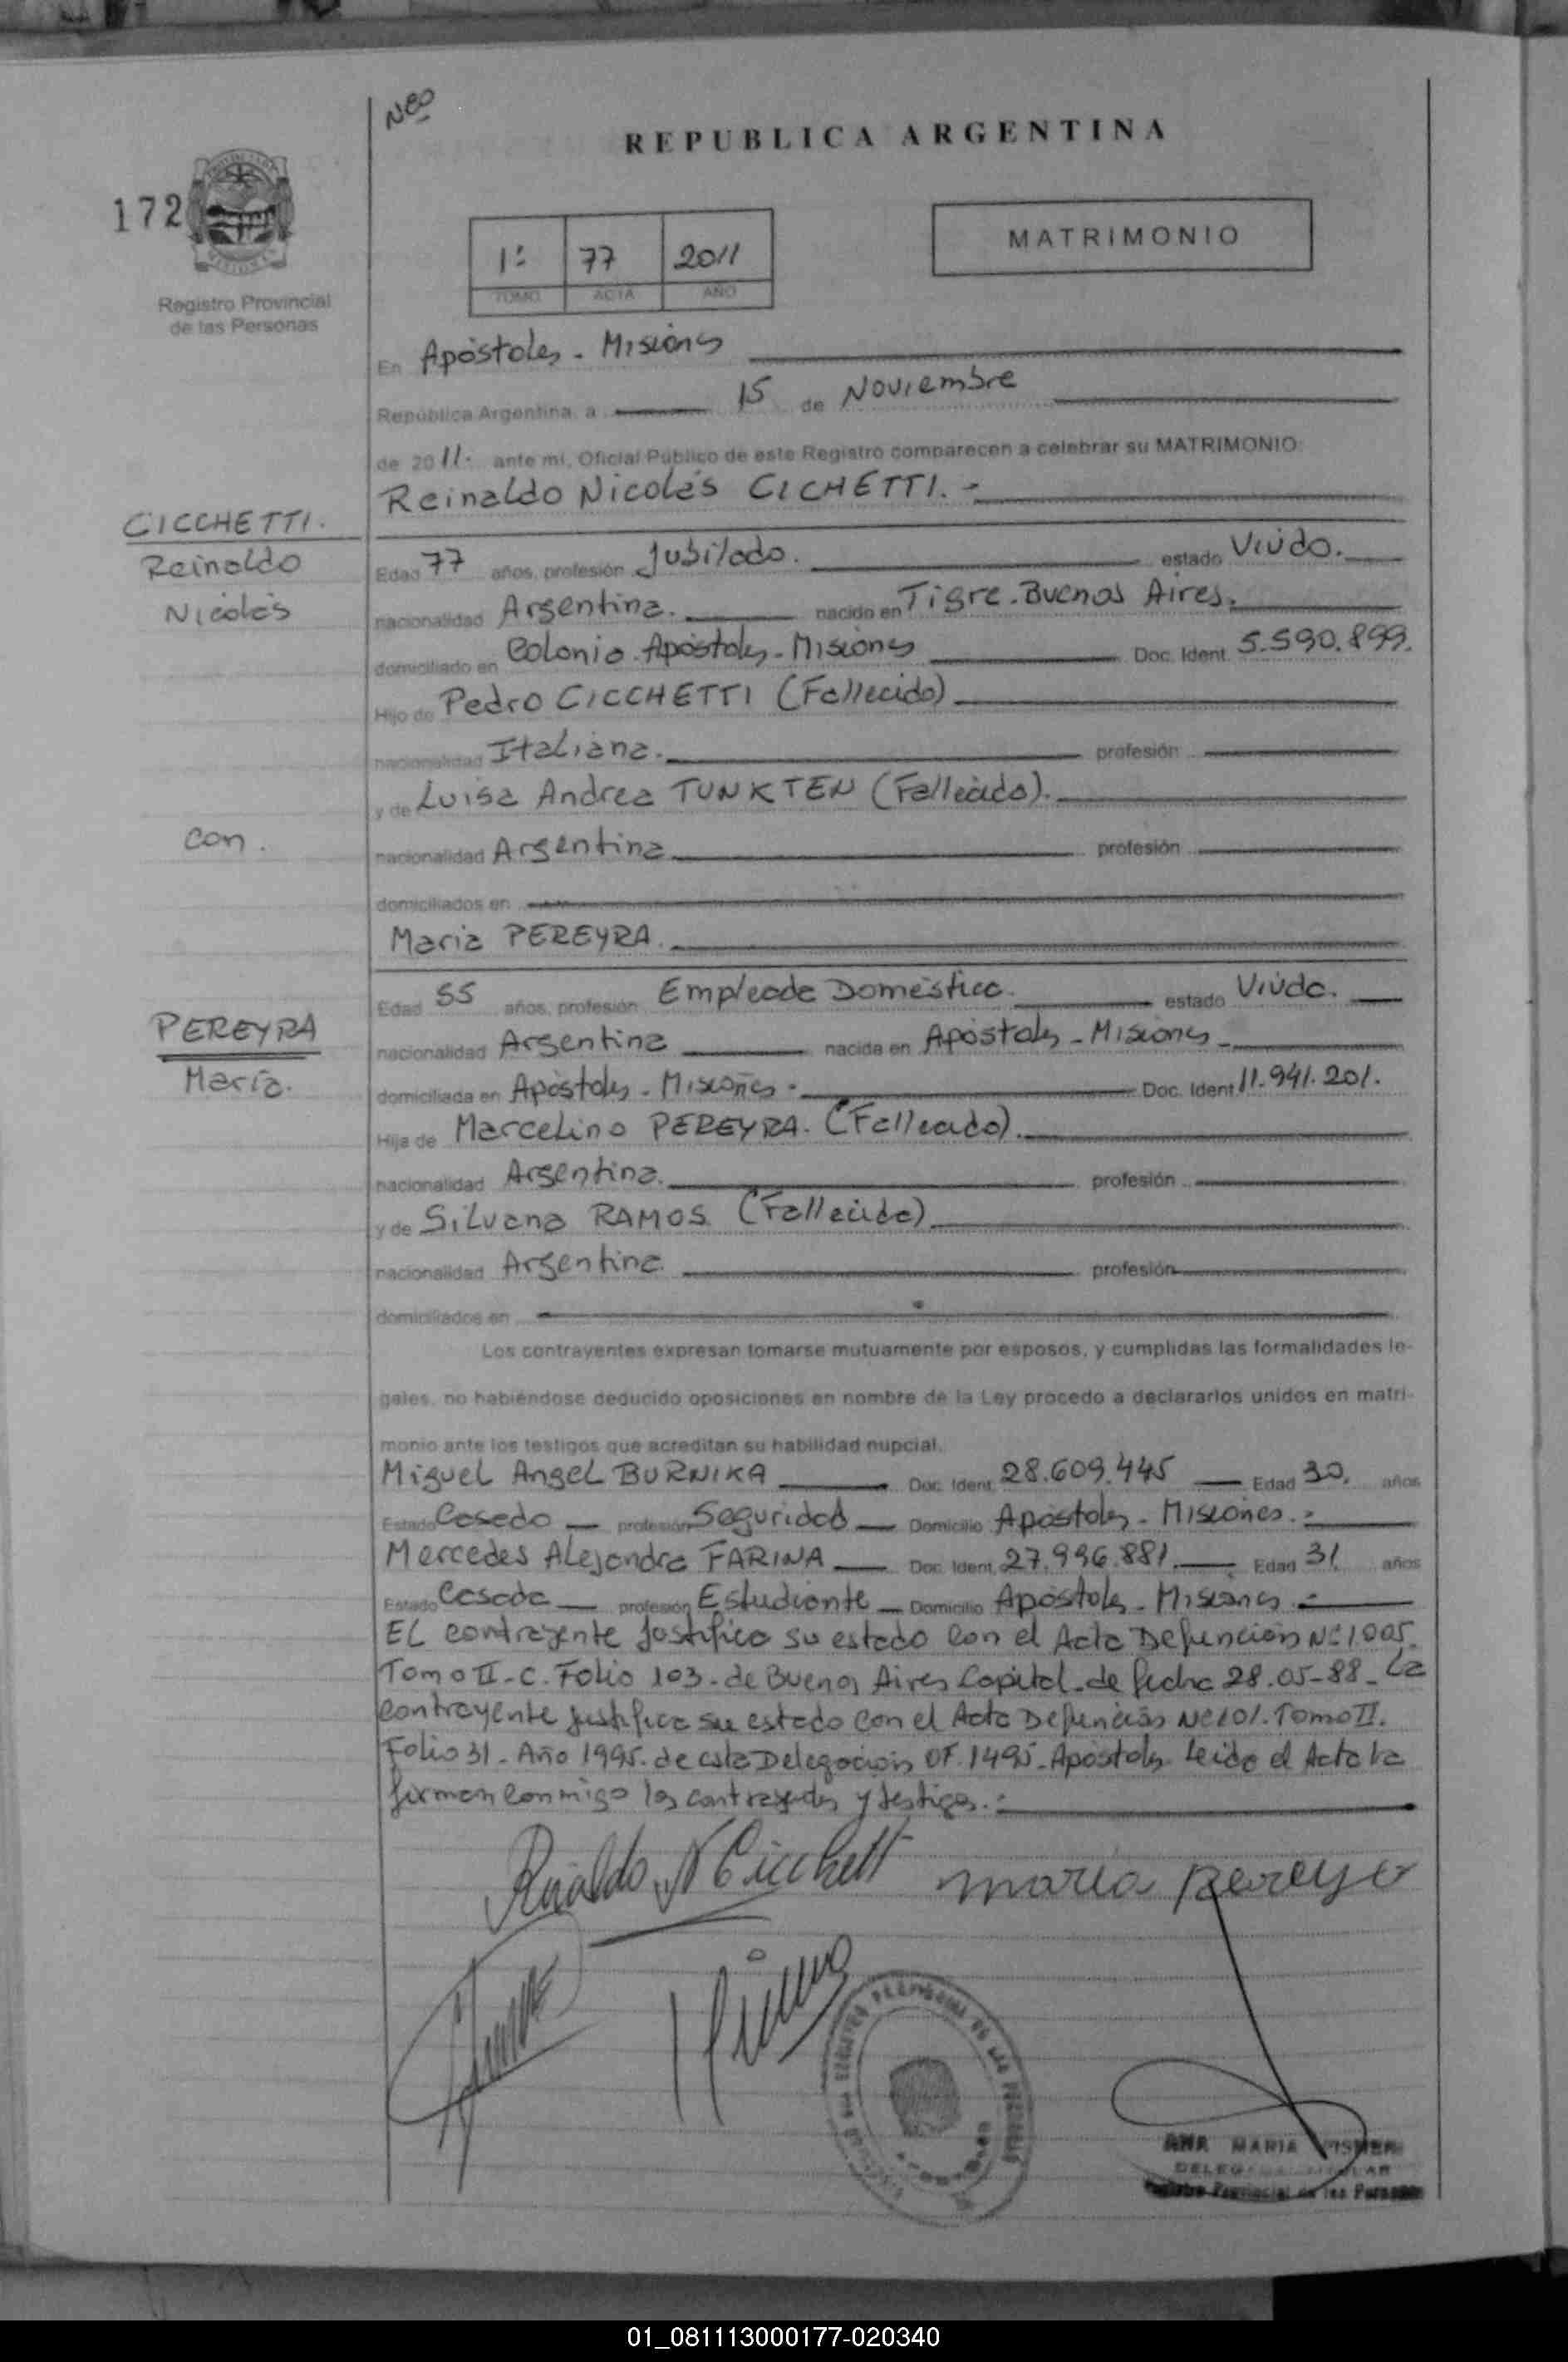 Neo
REPUBLICA ARGENTINA
172
1º 77 2011
TOMO ACTA AÑO
MATRIMONIO
Registro Provincial
de las Personas
En Apóstoles - Misiones
República Argentina, a 15 de Noviembre
de 2011. ante mí, Oficial Público de este Registro comparecen a celebrar su MATRIMONIO:
Reinaldo Nicolás CICHETTI. -
CICCHETTI.
Reinaldo
Nicolás
Edad 77 años, profesión Jubilado. estado Viudo.
nacionalidad Argentina. nacido en Tigre - Buenos Aires.
domiciliado en Colonia Apóstoles - Misiones Doc. Ident. 5.590.899.
Hijo de Pedro CICCHETTI (Fallecido)
nacionalidad Italiana. profesión
y de Luisa Andrea TUNKTEN (Fallecida).
con.
nacionalidad Argentina profesión
domiciliados en
Maria PEREYRA.
Edad 55 años, profesión Empleada Doméstica. estado Viuda.
PEREYRA
María.
nacionalidad Argentina nacida en Apóstoles - Misiones -
domiciliada en Apóstoles - Misiones - Doc. Ident. 11.941.201.
Hija de Marcelino PEREYRA. (Fallecido).
nacionalidad Argentina. profesión
y de Silvana RAMOS. (Fallecida)
nacionalidad Argentina. profesión
domiciliados en
Los contrayentes expresan tomarse mutuamente por esposos, y cumplidas las formalidades le-
gales, no habiéndose deducido oposiciones en nombre de la Ley procedo a declararlos unidos en matri-
monio ante los testigos que acreditan su habilidad nupcial.
Miguel Angel BURNIKA Doc. Ident. 28.609.445 Edad 30. años
Estado Casado profesión Seguridad Domicilio Apóstoles - Misiones. -
Mercedes Alejandra FARINA Doc. Ident. 27.996.881. Edad 31 años
Estado Casada profesión Estudiante Domicilio Apóstoles - Misiones. -
EL contrayente justifica su estado con el Acta Defunción Nº 1005.
Tomo II-C. Folio 103. de Buenos Aires Capital. de fecha 28.05-88 - La
contrayente justifica su estado con el Acta Defunción Nº 101. Tomo II.
Folio 31 - Año 1995. de esta Delegación OF. 1495 - Apóstoles. Leida el Acta la
firman conmigo los contrayentes y testigos. -
Reinaldo N Cicchett maria pereyra
ANA MARIA
Registro Provincial de las Personas
01_081113000177-020340